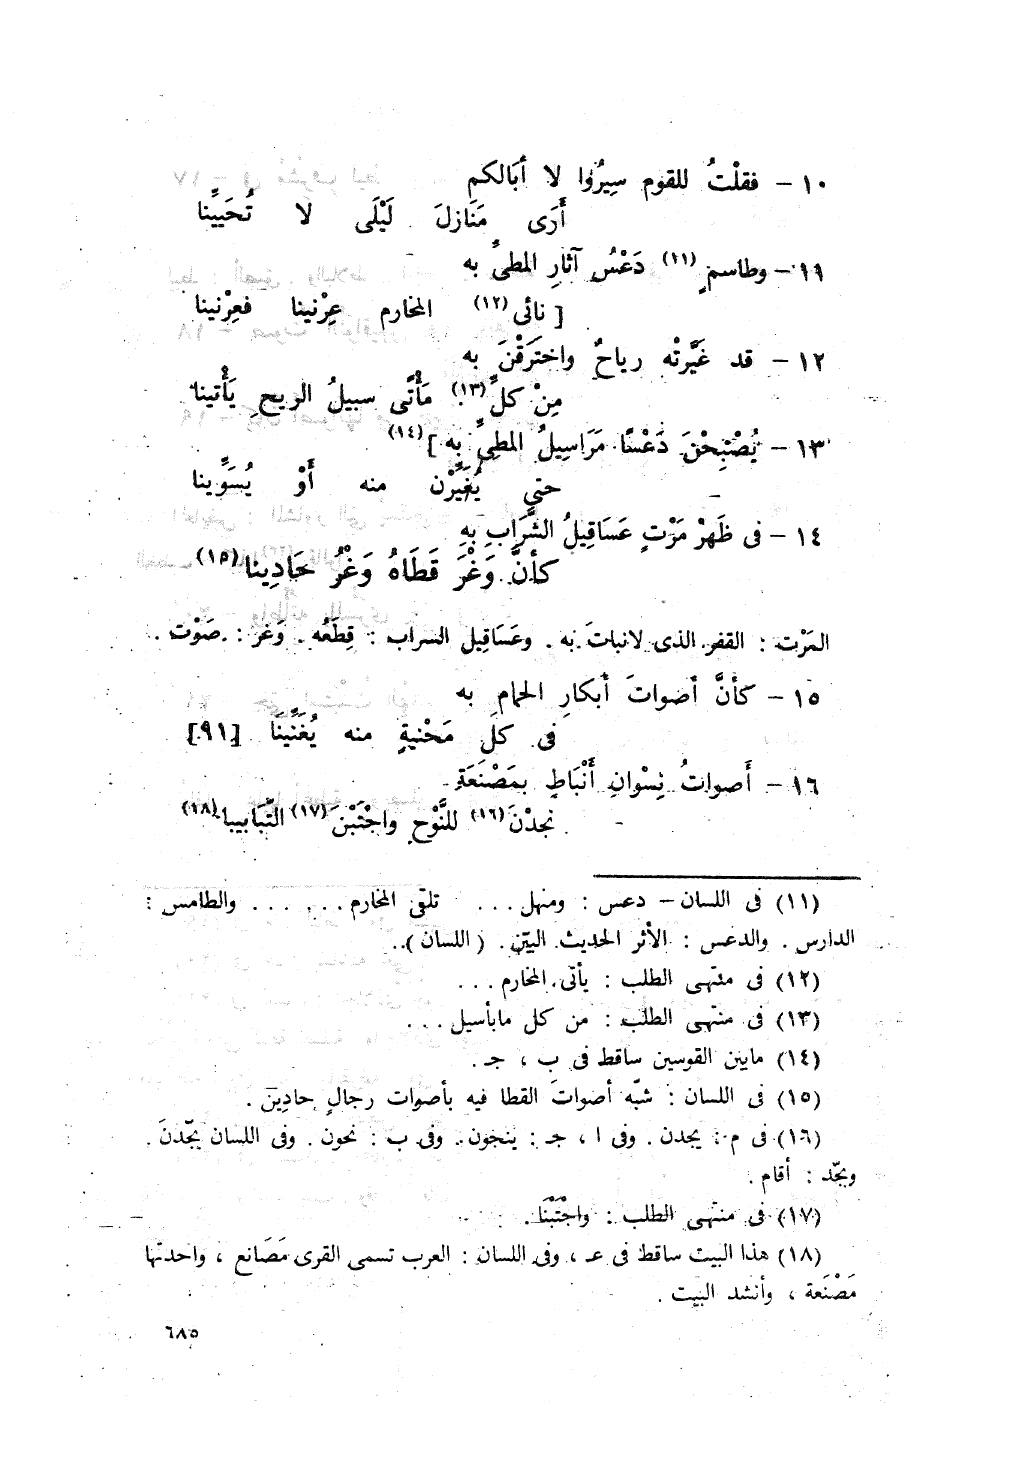 ١٠ – فقلْتُ للقوم سِيرُوا لا أبَالكم
أَرَى مَنَازلَ لَيْلَى لا تُحَيِّينا
١١ – وطاسمٍ (١١) دَعْسُ آثارِ المطىِّ به
[ نائى (١٢) المخارم عِرْنينا فعِرْنينا
١٢ – قد غَيَّرتْه رياحٌ واختَرَقْنَ به
مِنْ كلِّ (١٣) مَأْتًى سبيلُ الريحِ يَأْتينا
١٣ – يُصْبِحْنَ دَعْسًا مَرَاسِيلُ المطىِّ به ] (١٤)
حتى يُغَيِّرْن منه أَوْ يُسَوِّينا
١٤ – فى ظَهْرْ مَرْتٍ عَسَاقِيلُ السَّرَابِ بِهِ
كأنَّ وَغْرَ قَطَاهُ وَغْرُ حَادِينا (١٥)
المَرْت : القفر الذى لانباتَ به . وعَسَاقِيل السراب : قِطَعُه . وَغر : صَوْت .
١٥ – كأنَّ أصواتَ أبكارِ الحمامِ به
فى كل مَحْنيةٍ منه يُغَنِّينَا [٩١]
١٦ – أَصواتُ نِسْوانِ أَنْبَاطٍ بمَصْنَعَةٍ
نجدْنَ (١٦) للنَّوْحِ واجْتَبْنَ (١٧) التَّبَابيبا (١٨)
(١١) فى اللسان – دعس : ومنهل . . . تلقى المخارم . . . . . . والطامس :
الدارس . والدعس : الأثر الحديث البيّن . ( اللسان ) . .
(١٢) فى منتهى الطلب : يأتى المخارم . . .
(١٣) فى منتهى الطلب : من كل مابأسيل . . .
(١٤) مابين القوسين ساقط فى ب ، جـ .
(١٥) فى اللسان : شبّه أصواتَ القطا فيه بأصوات رجالٍ حادِين .
(١٦) فى م : يجدن . وفى ا ، جـ : ينجون . وفى ب : نحون . وفى اللسان بجّدنَ .
وبجّد : أقام .
(١٧) فى منتهى الطلب : واجْتَبْنَا .
(١٨) هذا البيت ساقط فى عـ ، وفى اللسان : العرب تسمى القرى مَصَانع ، واحدتها
مَصْنَعة ، وأنشد البيت .
٦٨٥